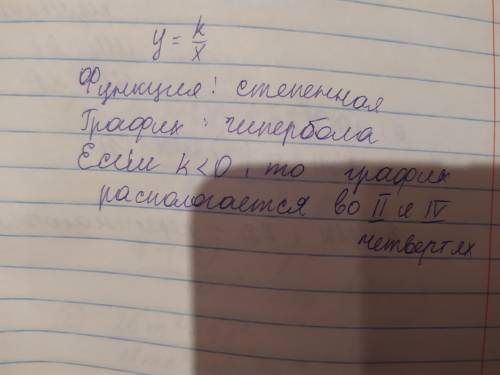 y = k/x
Функция: степенная
График: гипербола
Если k<0, то график
распологается во II и IV
четвертях